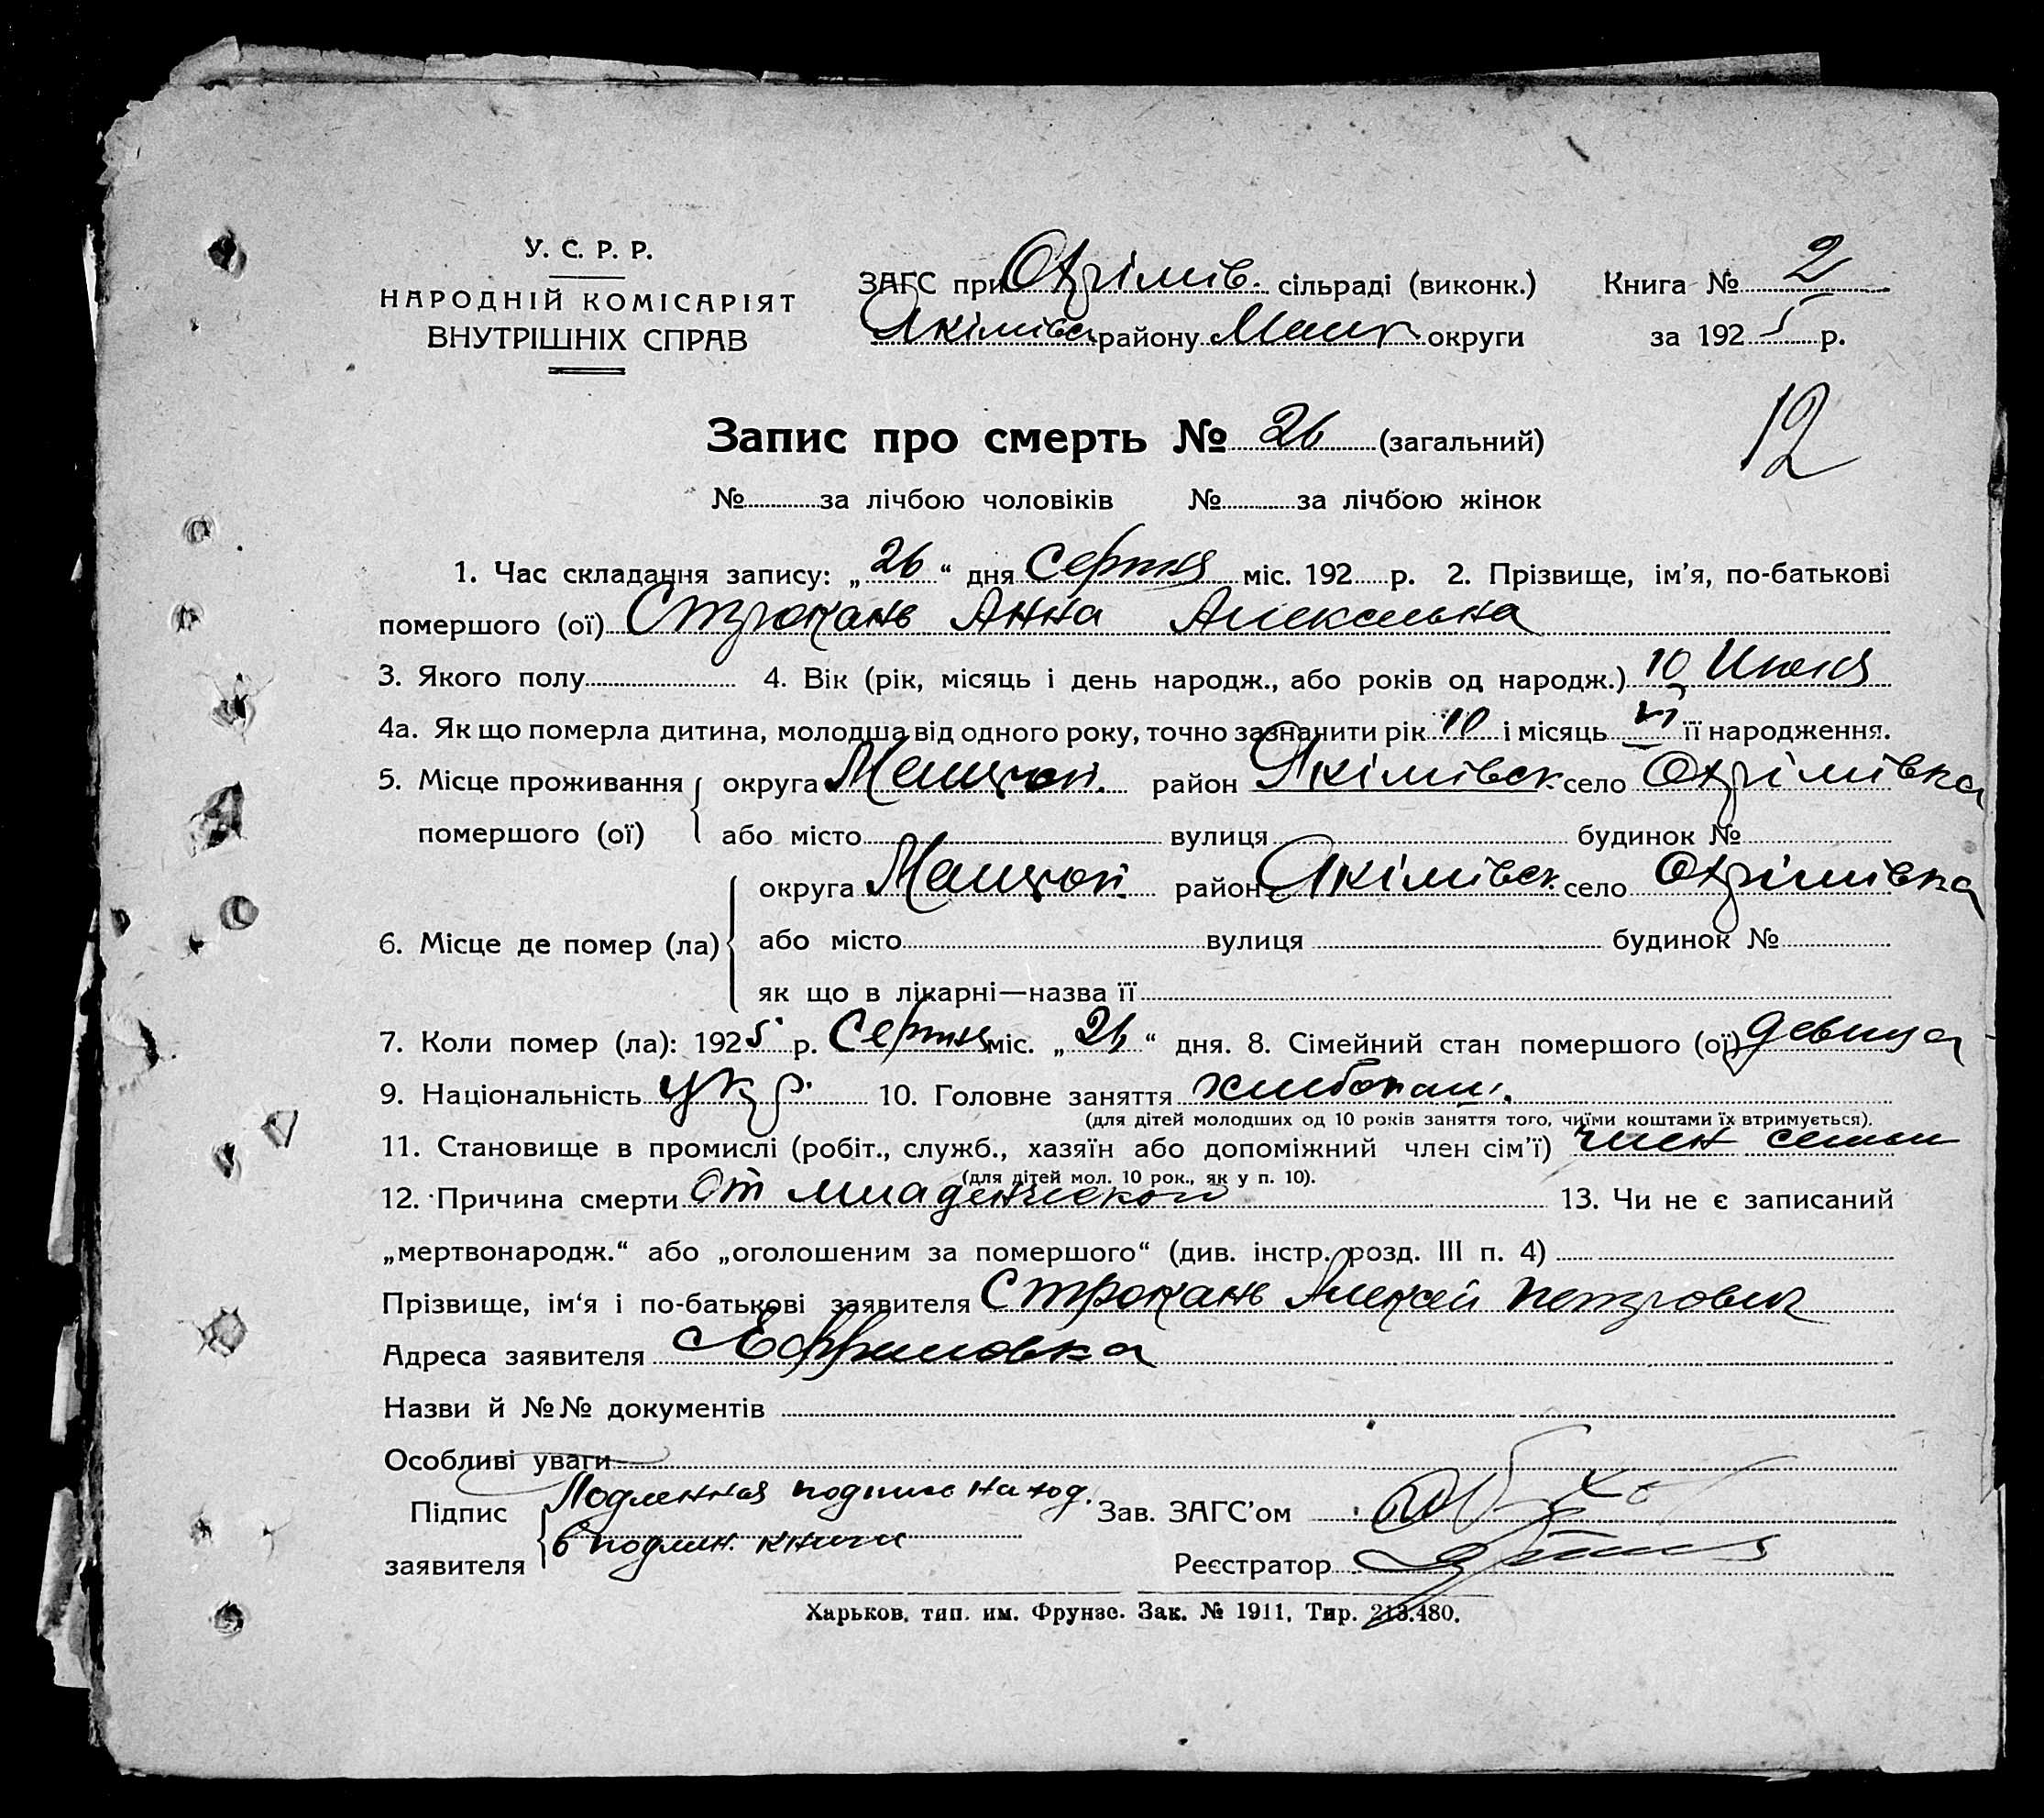 У. С. Р. Р.
НАРОДНІЙ КОМІСАРІЯТ
ВНУТРІШНІХ СПРАВ
ЗАГС при Охрімів. сільраді (виконк.)
Якімівск району Меліт округи
Книга № 2
за 1925 р.
12
Запис про смерть № 26 (загальний)
№ за лічбою чоловіків № за лічбою жінок
1. Час складання запису: „26“ дня Серпня міс. 192 р. 2. Прізвище, ім’я, по-батькові
помершого (ої) Строкань Анна Алексеевна
3. Якого полу 4. Вік (рік, місяць і день народж., або років од народж.) 10 Июня
4а. Як що померла дитина, молодша від одного року, точно зазначити рік 10 і місяць VI її народження.
5. Місце проживання помершого (ої) округа район Якімівск село Охрімівка
або місто вулиця будинок №
6. Місце де помер (ла) округа район Якімівск село Охрімівка
або місто вулиця будинок №
як що в лікарні—назва її
7. Коли помер (ла): 1925 р. Серпня міс. „26“ дня. 8. Сімейний стан помершого (ої) девица
9. Національність укр. 10. Головне заняття хлибопаш.
(для дітей молодших од 10 років заняття того, чиїми коштами їх втримується).
11. Становище в промислі (робіт., служб., хазяїн або допоміжний член сім’ї) член семьи
(для дітей мол. 10 рок., як у п. 10).
12. Причина смерти От младенческого 13. Чи не є записаний
„мертвонародж.“ або „оголошеним за помершого“ (див. інстр. розд. III п. 4)
Прізвище, ім‘я і по-батькові заявителя Строкань Алексей Петрович
Адреса заявителя Ефремовка
Назви й №№ документів
Особливі уваги
Підпис заявителя Подленная подпись наход.
в подлин. книги
Зав. ЗАГС’ом
Реєстратор
Харьков, тип. им. Фрунзе. Зак. № 1911, Тир. 213.480.